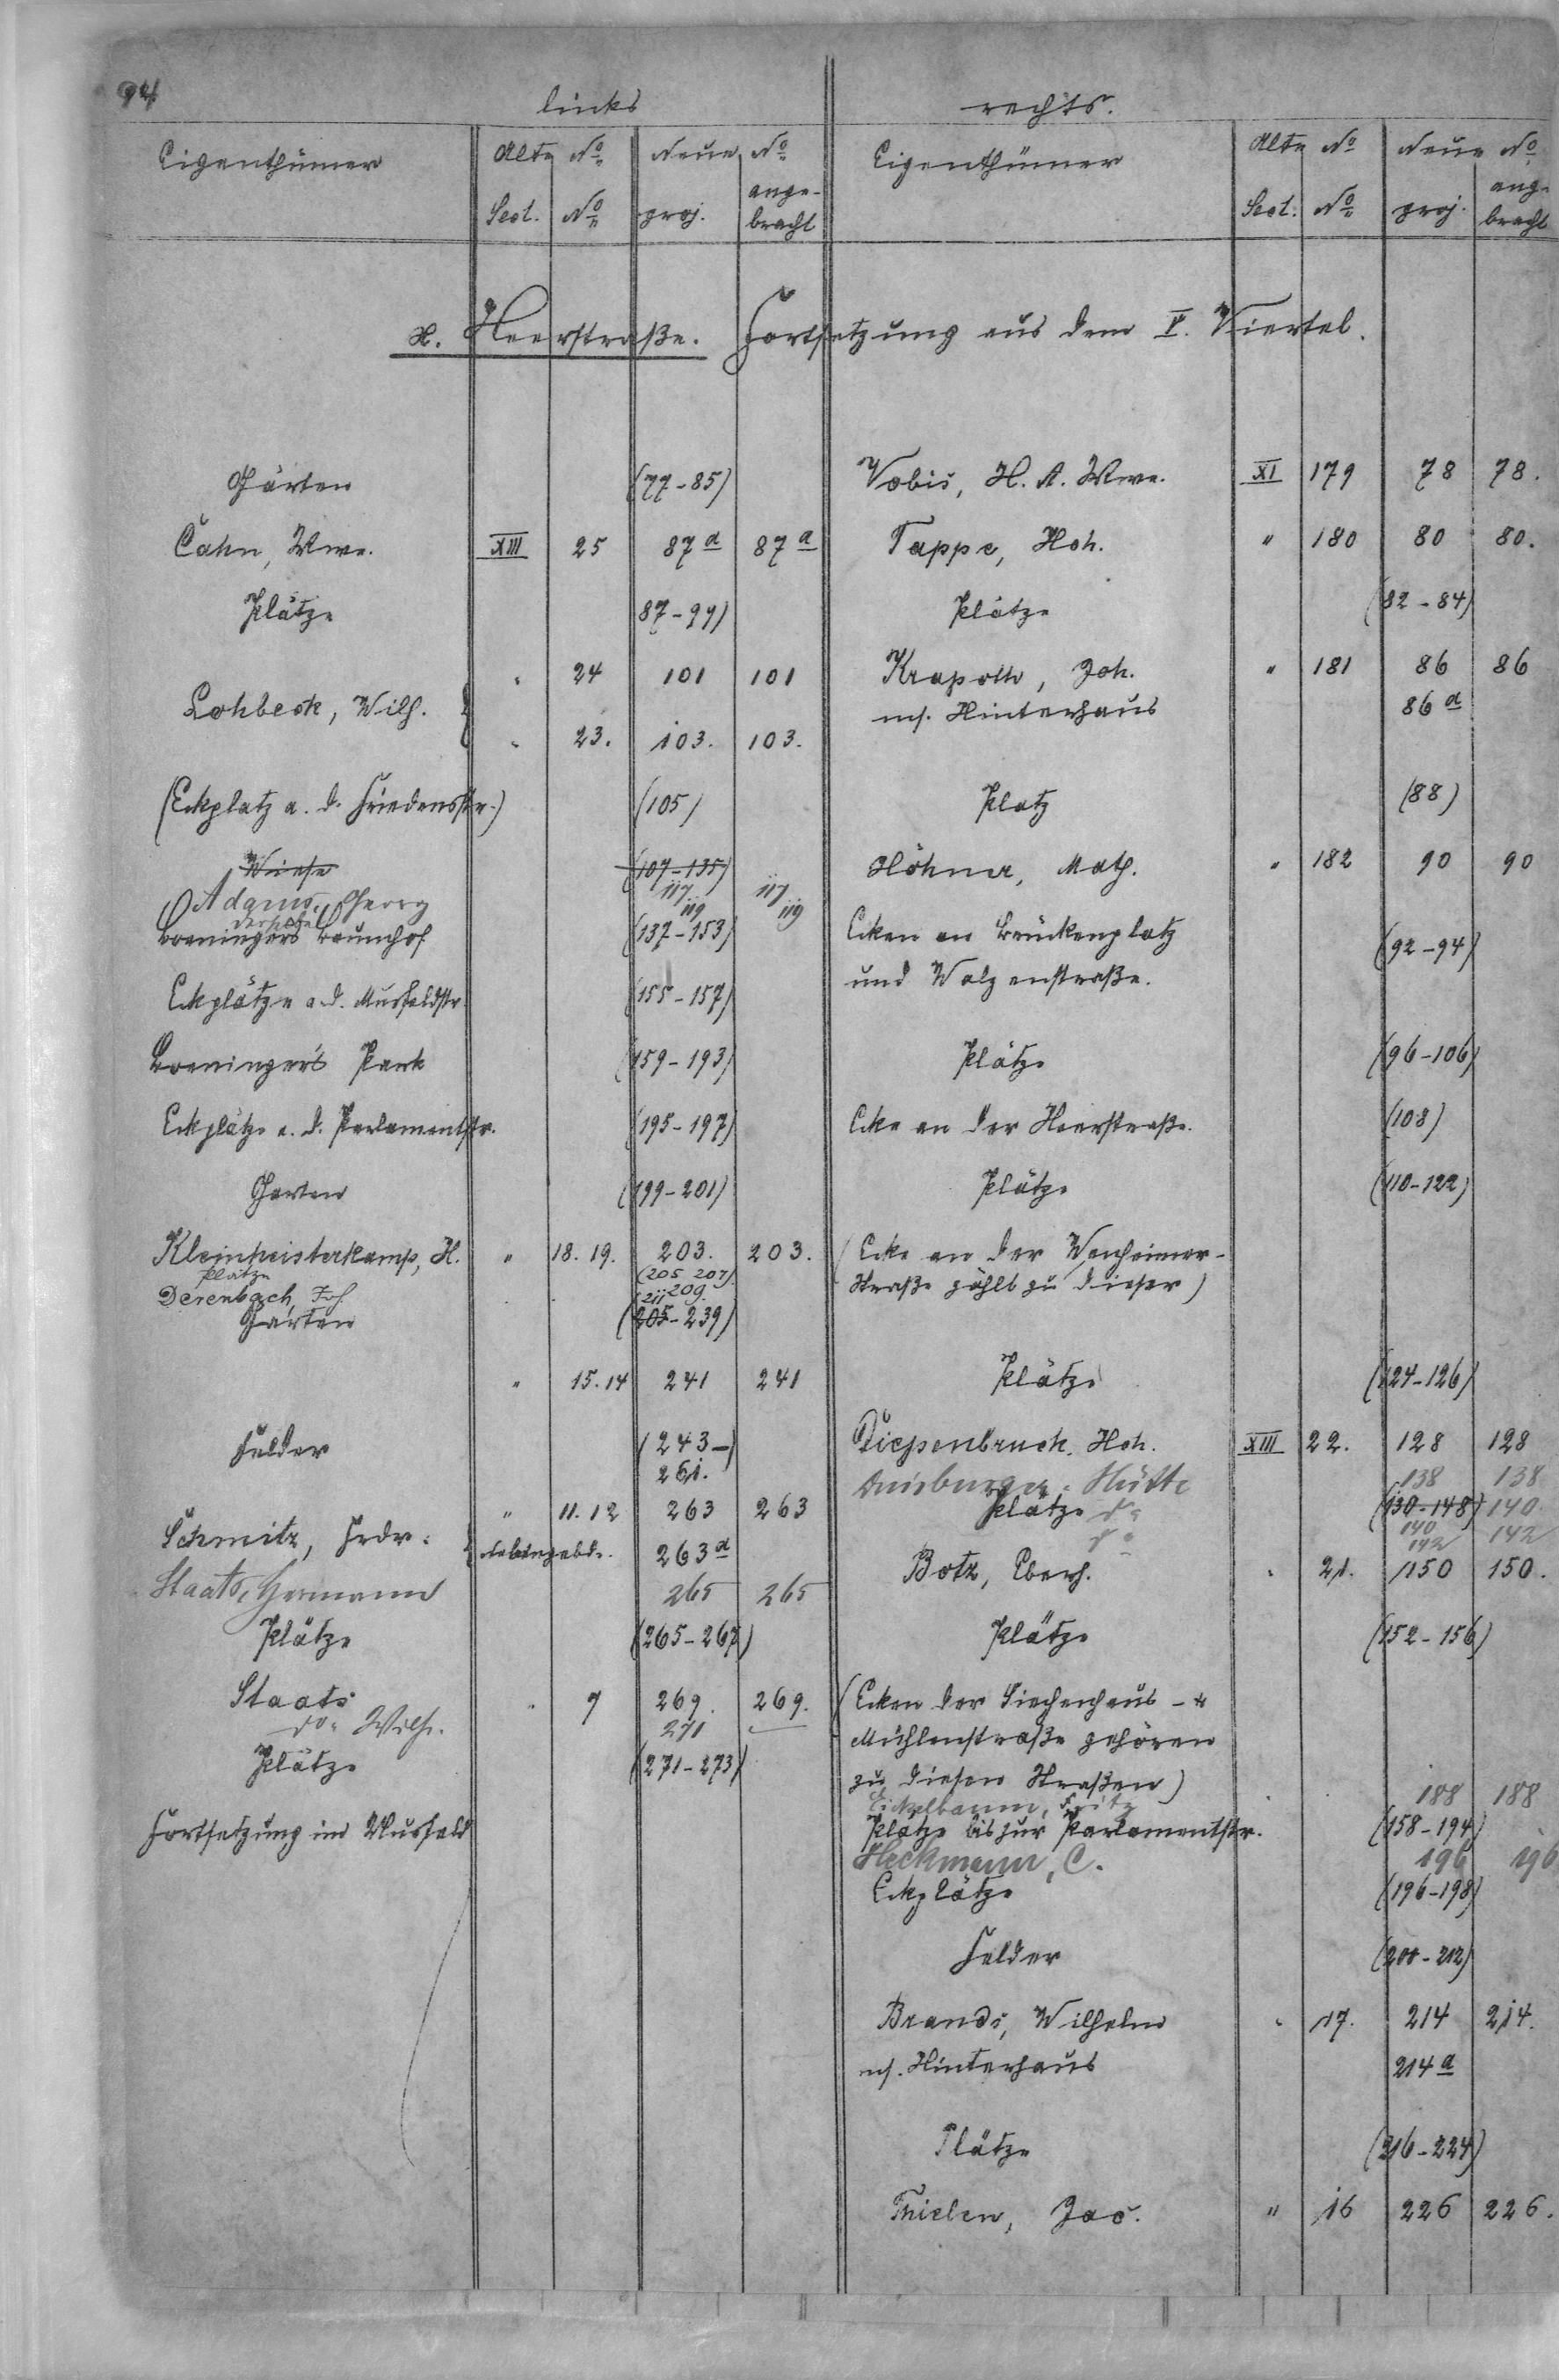 94
links
rechts.
Eigenthümer Alte No Neue No Eigenthümer Alte No Neue No
Sect. No proj. ange-bracht Sect. No proj. ange-bracht
H. Heerstraße. Fortsetzung aus dem V. Viertel.
Gärten (77-85) Vobis, H. A. Wwe. XI 179 78 78.
Cahn, Wwe. XIII 25 87a 87a Tappe, Hch. " 180 80 80.
Plätze 87-99) Plätze (82-84)
" 24 101 101 Krapoth, Joh. " 181 86 86
Lohbeck, Wilh. ns. Hinterhaus 86a
" 23. 103. 103.
(Eckplatz a. d. Friedensstr.) (105) Platz (88)
Wiese (107-135) Höhner, Math. " 182 90 90
Adams, Georg 117 117
derselbe 119 119
Boeningers Baumhof (137-153) Ecken am Brückenplatz (92-94)
Eckplätze a. d. Musfeldstr. (155-157) und Walzenstraße.
Boeninger's Park (159-193) Plätze (96-106)
Eckplätze a. d. Parlamentstr. (195-197) Ecke an der Heerstraße. (108)
Garten (199-201) Plätze (110-122)
Kleinheisterkamp, H. " 18. 19. 203. 203. (Ecke an der Wanheimer-
Plätze (205 207).
Derenbach, Joh 209. Straße zählt zu dieser)
Gärten (211
(205-239)
" 15. 14 241 241 Plätze (124-126)
Felder (243- Diepenbruch, Hch. XIII 22. 128 128
261. Duisburger-Hütte 138 138
" 11. 12 263 263 Plätze do (130-148) 140
Schmitz, Frdr. 263a do 140 142
142
Botz, Eberh. " 21. 150 150.
Staats, Hermann 265 265
Plätze (265-267) Plätze (152-156)
Staats " 7 269. 269. (Ecken der Siechenhaus- &
do Wilh. 271 Mühlenstraße gehören
Plätze (271-273) zu diesen Straßen)
Eickelbaum, Fritz 188 188
Fortsetzung im Musfeld Plätze bis zur Parlamentstr. (158-194)
Heckmann, C. 196 196
Eckplätze (196-198)
Felder (200-212)
Brands, Wilhelm " 17. 214 214.
ns. Hinterhaus 214a
Plätze (216-224)
Thielen, Jac. " 16 226 226.